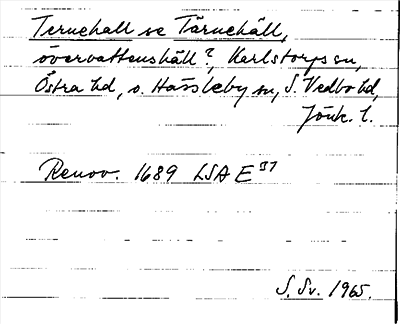 Ternehall se Tärnehäll,
övervattenshäll?, Karlstorps sn,
Östra hd, o. Hässleby sn, S. Vedbo hd,
Jönk. l.
Renov. 1689 LSA E 37
S. Sv. 1965.